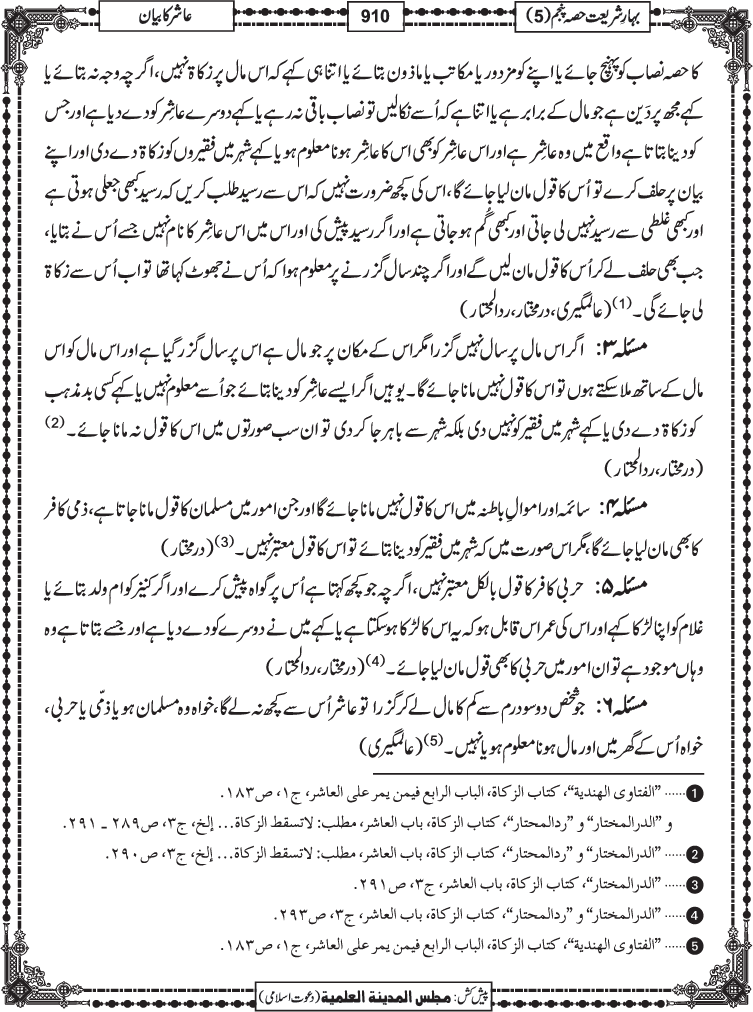 بہارِ شریعت حصہ پنجم (5)
910
عاشر کا بیان
کا حصہ نصاب کو پہنچ جائے یا اپنے کو مزدور یا مکاتب یا ماذون بتائے یا اتنا ہی کہے کہ اس مال پر زکاۃ نہیں، اگرچہ وجہ نہ بتائے یا
کہے مجھ پر دَین ہے جو مال کے برابر ہے یا اتنا ہے کہ اُسے نکالیں تو نصاب باقی نہ رہے یا کہے دوسرے عاشِر کو دے دیا ہے اور جس
کو دینا بتاتا ہے واقع میں وہ عاشِر ہے اور اس عاشِر کو بھی اس کا عاشِر ہونا معلوم ہو یا کہے شہر میں فقیروں کو زکاۃ دے دی اور اپنے
بیان پر حلف کرے تو اُس کا قول مان لیا جائے گا، اس کی کچھ ضرورت نہیں کہ اس سے رسید طلب کریں کہ رسید کبھی جعلی ہوتی ہے
اور کبھی غلطی سے رسید نہیں لی جاتی اور کبھی گُم ہو جاتی ہے اور اگر رسید پیش کی اور اس میں اس عاشِر کا نام نہیں جسے اُس نے بتایا،
جب بھی حلف لے کر اُس کا قول مان لیں گے اور اگر چند سال گزرنے پر معلوم ہوا کہ اُس نے جھوٹ کہا تھا تو اب اُس سے زکاۃ
لی جائے گی۔ (1) (عالمگیری، درمختار، ردالمحتار)
مسئلہ ۳: اگر اس مال پر سال نہیں گزرا مگر اس کے مکان پر جو مال ہے اس پر سال گزر گیا ہے اور اس مال کو اس
مال کے ساتھ ملا سکتے ہوں تو اس کا قول نہیں مانا جائے گا۔ یوہیں اگر ایسے عاشِر کو دینا بتائے جو اُسے معلوم نہیں یا کہے کسی بدمذہب
کو زکاۃ دے دی یا کہے شہر میں فقیر کو نہیں دی بلکہ شہر سے باہر جا کر دی تو ان سب صورتوں میں اس کا قول نہ مانا جائے۔ (2)
(درمختار، ردالمحتار)
مسئلہ ۴: سائمہ اور اموالِ باطنہ میں اس کا قول نہیں مانا جائے گا اور جن امور میں مسلمان کا قول مانا جاتا ہے، ذمی کافر
کا بھی مان لیا جائے گا، مگر اس صورت میں کہ شہر میں فقیر کو دینا بتائے تو اس کا قول معتبر نہیں۔ (3) (درمختار)
مسئلہ ۵: حربی کافر کا قول بالکل معتبر نہیں، اگرچہ جو کچھ کہتا ہے اُس پر گواہ پیش کرے اور اگر کنیز کو ام ولد بتائے یا
غلام کو اپنا لڑکا کہے اور اس کی عمر اس قابل ہو کہ یہ اس کا لڑکا ہو سکتا ہے یا کہے میں نے دوسرے کو دے دیا ہے اور جسے بتاتا ہے وہ
وہاں موجود ہے تو ان امور میں حربی کا بھی قول مان لیا جائے۔ (4) (درمختار، ردالمحتار)
مسئلہ ۶: جو شخص دو سو درم سے کم کا مال لے کر گزرا تو عاشر اُس سے کچھ نہ لے گا، خواہ وہ مسلمان ہو یا ذمّی یا حربی،
خواہ اُس کے گھر میں اور مال ہونا معلوم ہو یا نہیں۔ (5) (عالمگیری)
1 ...... ”الفتاوی الهندیة“، کتاب الزکاة، الباب الرابع فیمن یمر علی العاشر، ج۱، ص۱۸۳.
و ”الدرالمختار“ و ”ردالمحتار“، کتاب الزکاة، باب العاشر، مطلب: لاتسقط الزکاة... إلخ، ج۳، ص۲۸۹ ـ ۲۹۱.
2 ...... ”الدرالمختار“ و ”ردالمحتار“، کتاب الزکاة، باب العاشر، مطلب: لاتسقط الزکاة... إلخ، ج۳، ص۲۹۰.
3 ...... ”الدرالمختار“، کتاب الزکاة، باب العاشر، ج۳، ص۲۹۱.
4 ...... ”الدرالمختار“ و ”ردالمحتار“، کتاب الزکاة، باب العاشر، ج۳، ص۲۹۳.
5 ...... ”الفتاوی الهندیة“، کتاب الزکاة، الباب الرابع فیمن یمر علی العاشر، ج۱، ص۱۸۳.
پیش کش: مجلس المدینة العلمیة (دعوتِ اسلامی)